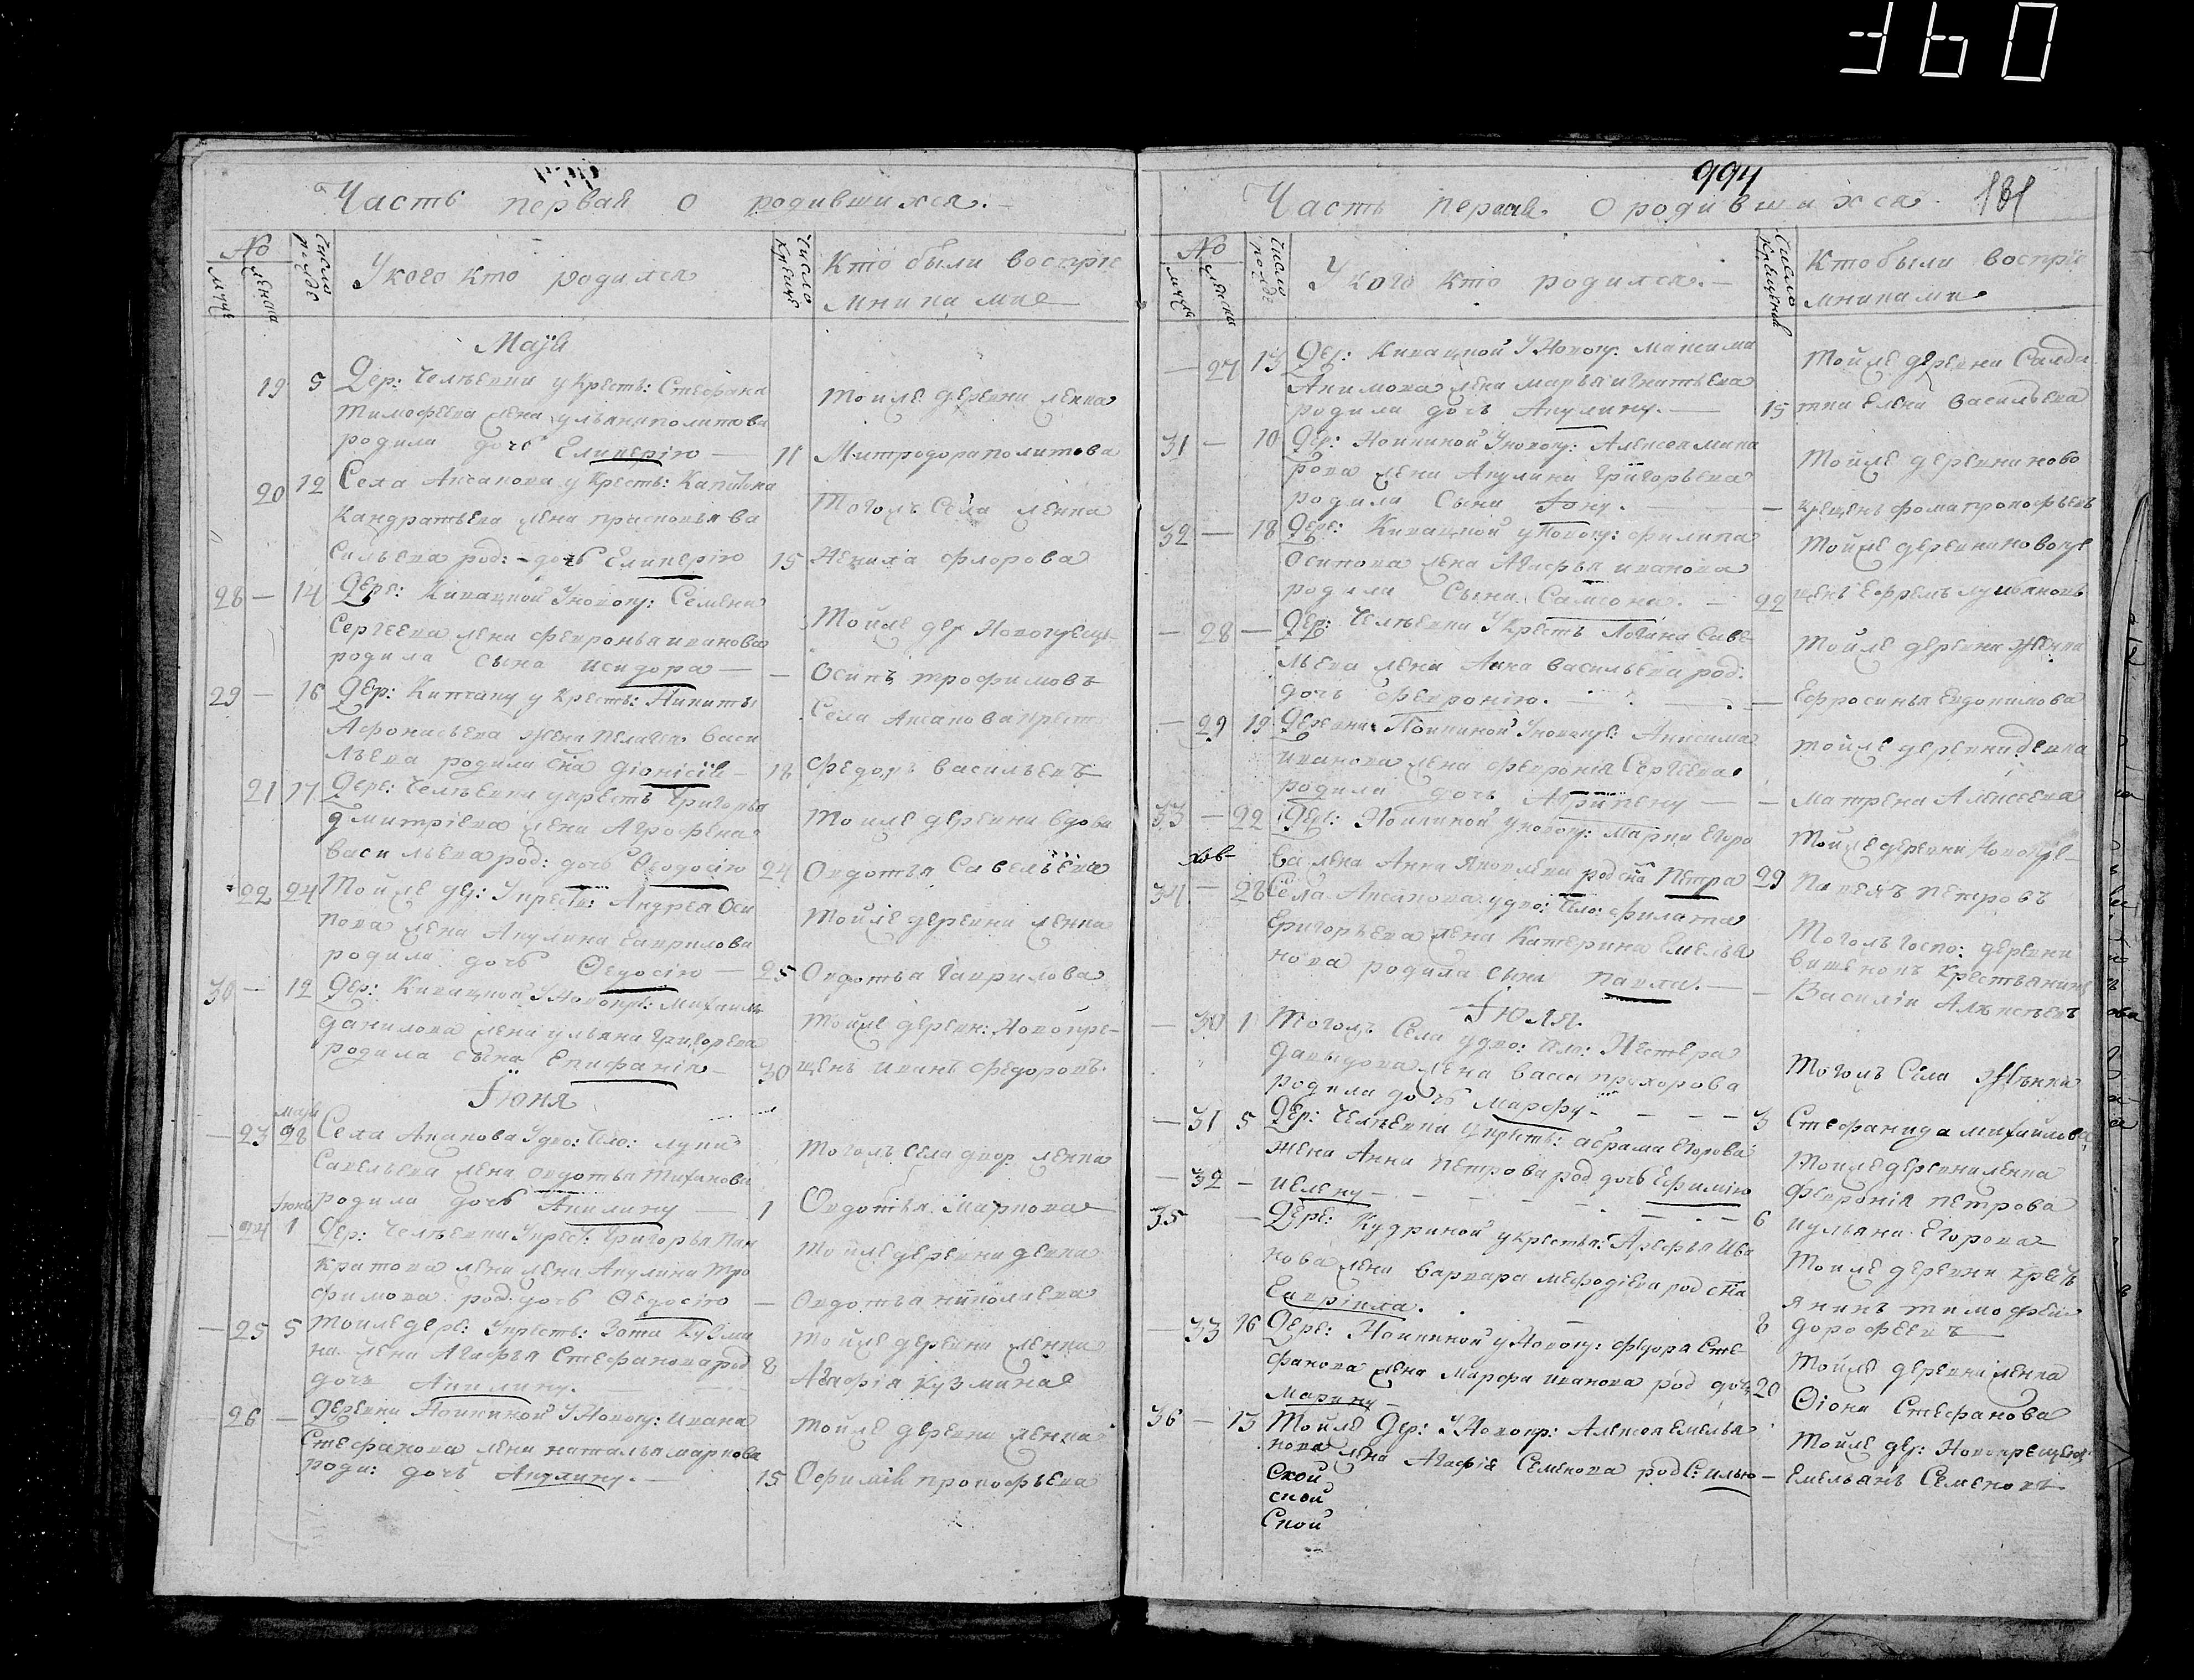 360
Часть первая о родившихся.
№
Число рожде
У кого кто родился
Число креще
Кто были восприе
мниками
муж
женска
Маїя
19 5 Дер: Челѣевки у Кресть: Стефана
Тимофеева жена ульянаполитова
родила дочь Гликерію — 11
Тойже деревни женка
Митродораполитова
20 12 Села Аксанова у Кресть: Капитона
Кандратьева жена прасковья ва
сильева род: дочь Гликерію 15
Тогожъ Села женка
Ненила флорова
28 — 14 Дере: Кивацкой Уновокр: Семена
Сергеева жена феврониа иванова
родила сына исидора —
Тойже дер Новокрещ
Осипъ трофимовъ
29 — 16 Дер: у Кресть: Никиты
Афонасьева жена пелагея Васи
льева родила сна Діонісія — 18
Села Аксанова крест
Федоръ васильевъ
21 17 Дере: Челѣевки укресть Григорья
Дмитріева жена Агрофена
васильева род: дочь Феодосію 24
Тойже деревни вдова
Овдотья Савельева
22 24 Тойже де: Укресть: Андрея Оси
пова жена Акулина Гаврилова
родила дочь Федосію — 25
Тойже деревни женка
Овдотья Гаврилова
30 — 12 Дер: Кивацкой УНовокре: Михаилы
Данилова жена ульяна Григорева
родила сына Епифанія — 30
Тойже деревн: Новокре
щенъ иванъ Федоровъ.
Іюня
маїя
23 28 Села Аканова Удво: Ило: луки
Савельева жена овдотья Тиханова
родила дочь Акилину — 1
Тогожъ села двор женка
Овдотья Маркова
Іюнь
24 1 Дер: Челѣевки Укрест: Григорья Пан
кратова жена жена Акулина Тро
фимова род: дочь Федосію —
Тойже деревни девка
Овдотья николаева
25 5 Тойже дере: Укресть: Зота Кузми
на жена Агафья Стефанова род 8
дочь Акилину.
Тойже деревни женка
Агафія Кузмина
26 — Деревни Нойкиной УНовокр: ивана
Стефанова жена наталья маркова
роди: дочь Акулину. — 15
Тойже деревни женка
Офимія прокофьева
994
181
Часть первая О родившихся.
№
Число рожде
У кого кто родился. —
Число крещения
Кто были воспріе
мниками
27 13 Дер: Кивацкой УНовокр: Максима
Акимова жена марья игнатьева
родила дочь Акулину. — 15
Тойже деревни Салда
тки Елена васильева
31 — 10 Дер: Нойкиной Уновокр: Алексея мина
рова жена Акулина Григорьева
родила Сына Іону. —
Тойже деревни ново
крещенъ фома прокофьевъ
32 — 18 Дере: Кивацкой уновокр: филипа
Осипова жена Агафья иванова
родила Сына Самсона. — 22
Тойже деревниновокре
щенъ Ефремъ лукьяновъ
28 — Дер: Челѣевки Укресть Логина Саве
льева жена Анна васильева род:
дочь февронію. —
Тойже деревни женка
Ефросинья Евдокимова
29 19 Деревни Нойкиной Уновокре: Анисима
иванова жена февронія Сергеева
родила дочь Агрипену —
тойже деревни девка
матрена Алексеева
33 — 22 Дере: Нойкиной уновокр: Марки Егоро
ва жена Анна Яковлева род сна Петра 29
Тойже деревни Новокре
Павелъ петровъ
34 — 28 Села Аксанова удво: Ило: филата
Григорьева жена Катерина Емелья
нова родила сына павла. —
Тогожъ Госпо: деревни
Крестьянинъ
Василіи Алексеевъ
Іюля.
30 1 Тогожъ Села удво: Ило: Нестера
Давыдова жена васса прохорова
родила дочь марфу — 3
Тогожъ Села женка
Стефанида михайлова
31 5 Дер: Челѣевки укресть: абрама Егорова
жена Анна петрова род дочь Ефимію
32 — иелену — 6
Тойже деревниженка
февронія петрова
иульяна Егорова
35 — Дере: Кудриной укрестья: Арефья Ива
нова жена варвара мефодіева род сна
Гавріила. 8
Тойже деревни крест
янинъ тимофеи
дорофеевъ
33 16 Дере: Нойкиной уновокр: федора Сте
фанова жена марфа иванова род дочь 20
марину —
Тойже деревни женка
Фіона Стефанова
36 — 13 Тойже Дер: УНовокр: Алексея Емелья
нова жена Агафія Семенова род С: илью —
Тойже дер: Новокрещен
Емельянъ Семеновъ
Скои
скои
Скои